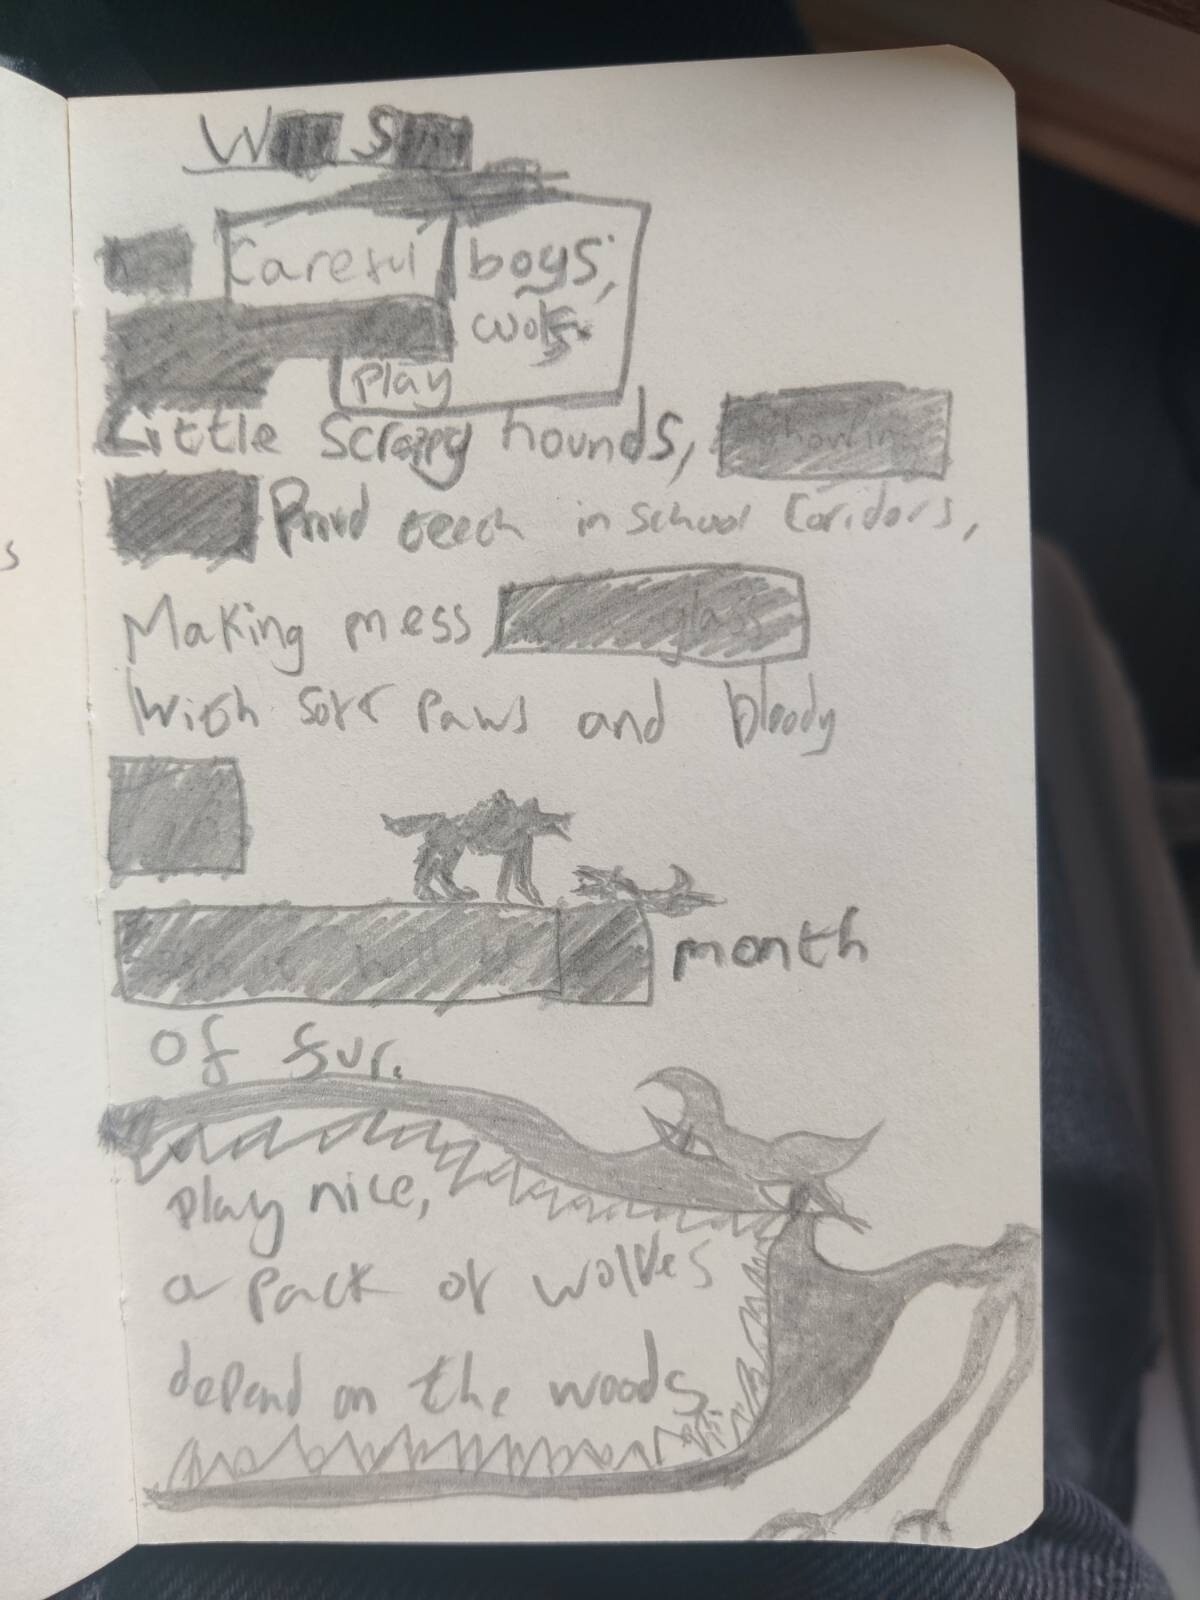 W S
Careful boys,
wolf
Play
Little Scrappy hounds, howlin
Proud teeth in School Coridors,
Making mess glass
With sore paws and bloody
month
of fur.
play nice,
a pack of wolves
depend on the woods.
s